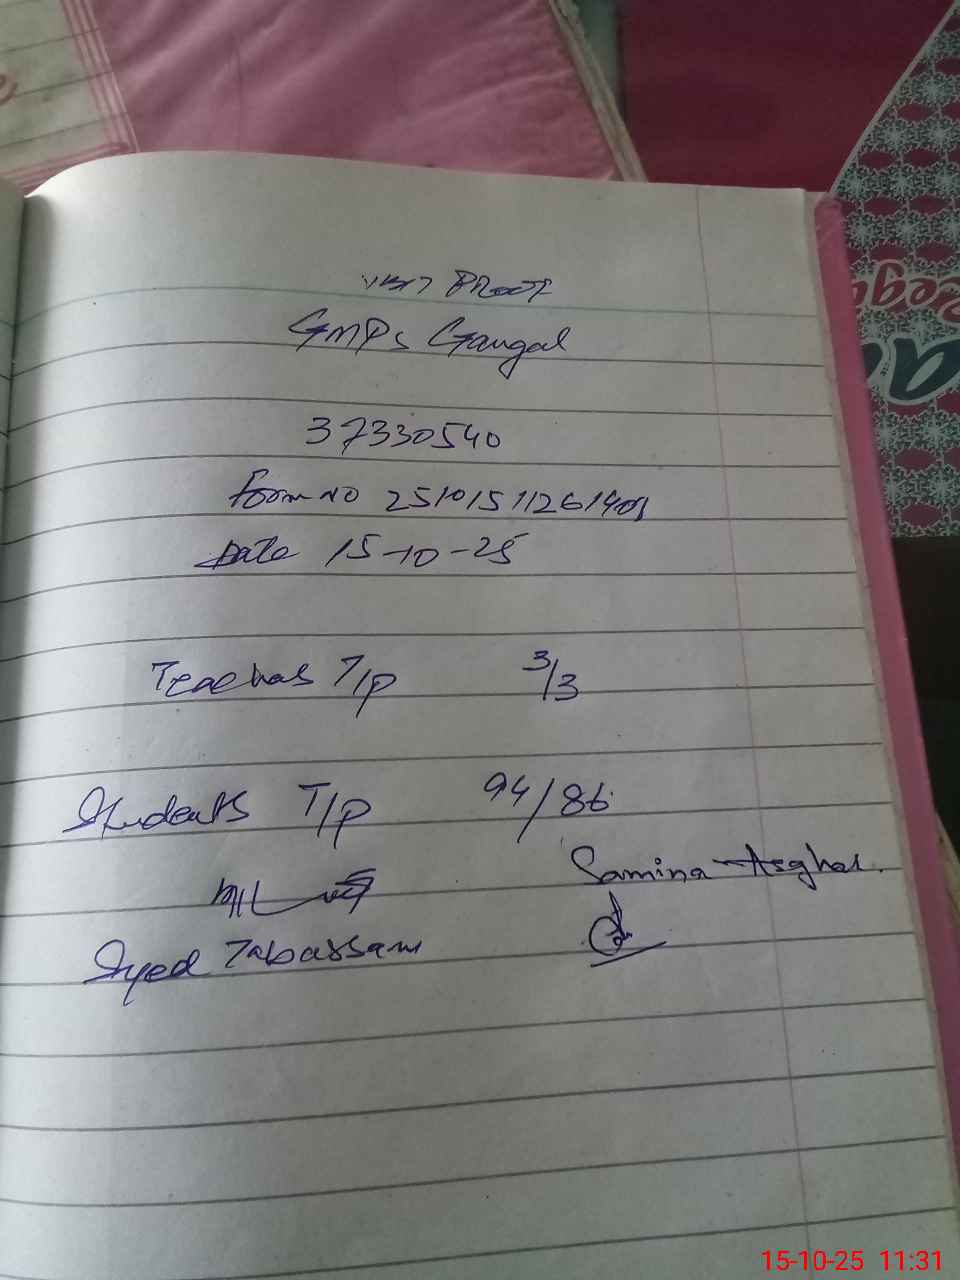 Visit Proof
GMPS Gangal
37330540
Form no 251015112614
Date 15-10-25
Teachers T/P 3/3
Students T/P 94/86
Samina Asghar.
Syed Tabassam
15-10-25 11:31